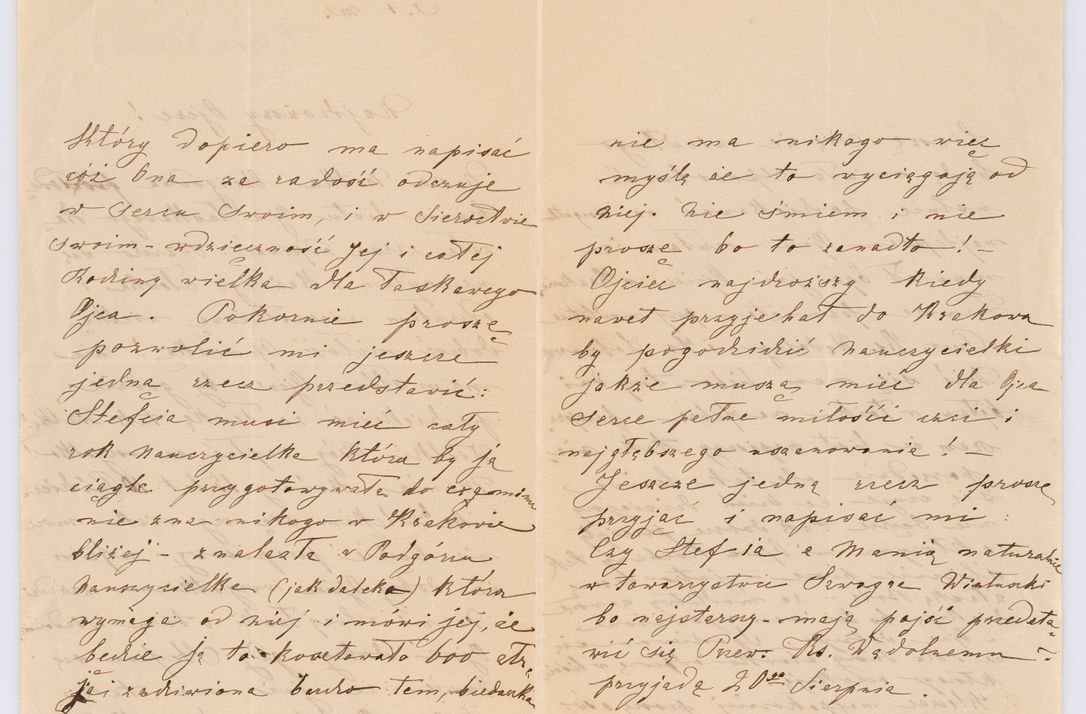 J. + m.
Najdroższy Ojcze!
który dopiero ma napisać
cóż Ona za radość odczuje
w sercu swoim, i w sieroctwie
swoim - wdzięczność Jej i całej
Rodziny wielka dla Łaskawego
Ojca. Pokornie proszę
pozwolić mi jeszcze
jedną rzecz przedstawić:
Stefcia musi mieć cały
rok nauczycielkę która by ją
ciągle przygotowywała do egzaminu
nie zna nikogo w Krakowie
bliżej - znalazła w Podgórzu
nauczycielkę (jak daleko) która
wymaga od niej i mówi jej, że
będzie ją to kosztowało 600 złr.
zadziwiona bardzo tem, biedaczka
nie ma nikogo więc
myślą że to wyciągają od
niej. Nie śmiem i nie
proszę bo to zanadto! -
Ojciec najdroższy kiedy
nawet przyjechał do Krakowa
by pogodzidzić nauczycielki
jakże muszą mieć dla Ojca
serce pełne miłości czci i
najgłębszego uszanowania! -
Jeszcze jedną rzecz proszę
przyjąć i napisać mi:
Czy Stefcia z Manią naturalnie
w towarzystwie Szwagra
bo najstarszy - mają pójść przedsta-
wić się Przew. Ks. Wądolnemu -?
przyjadą 20go Sierpnia.